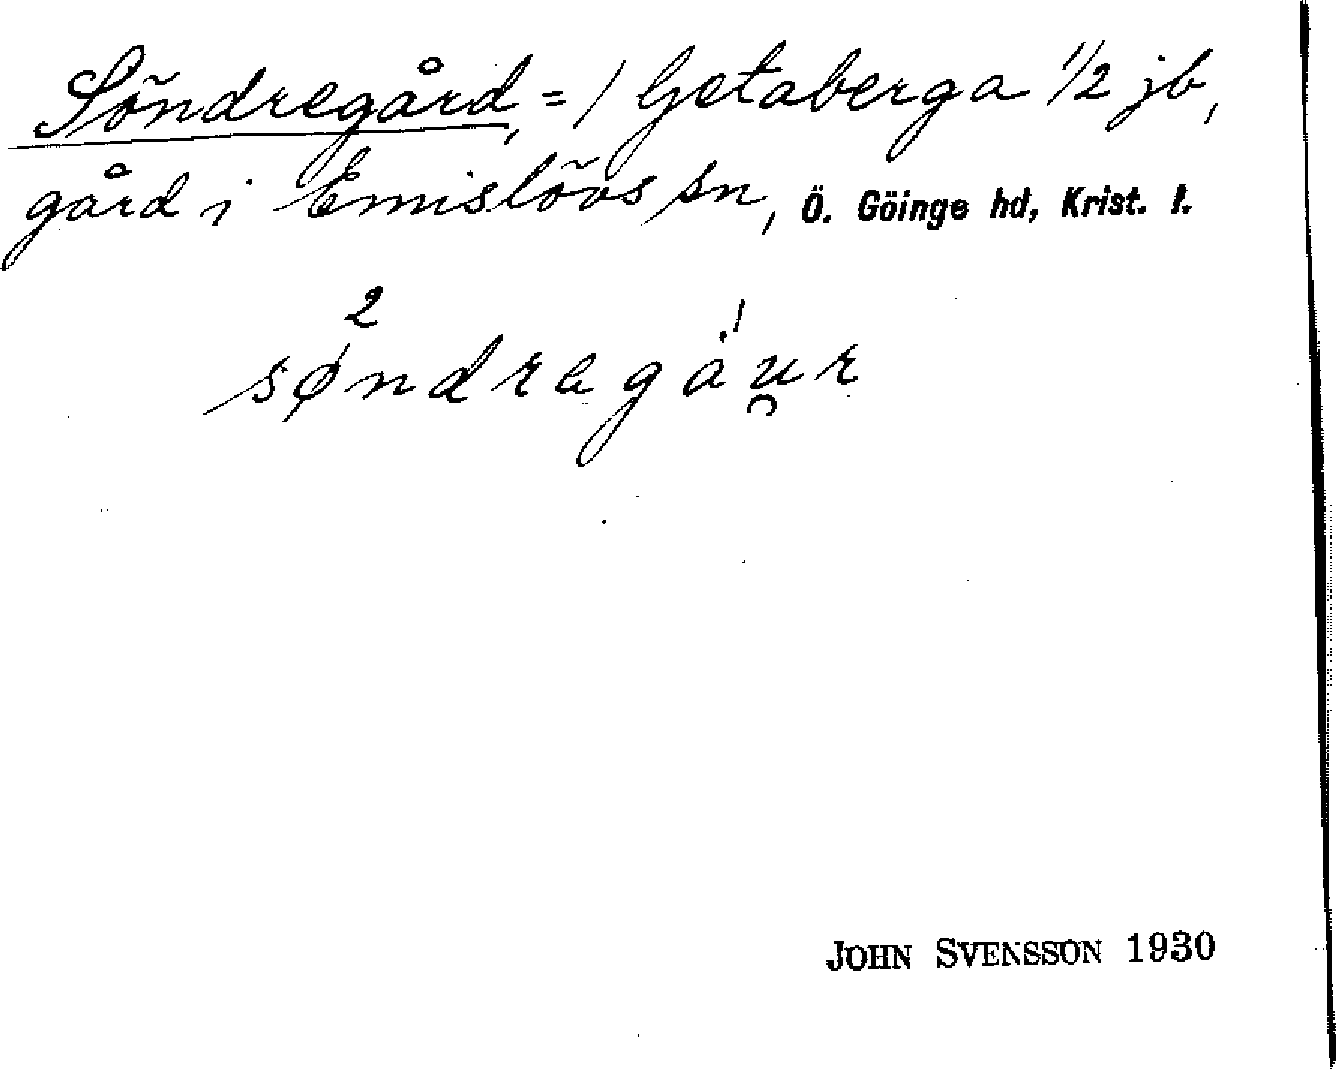 Söndregård, = 1 Getaberga 1/2 jb,
gård i Emislövs sn, Ö. Göinge hd, Krist. l.
2
søndragȧu̯r
JOHN SVENSSON 1930